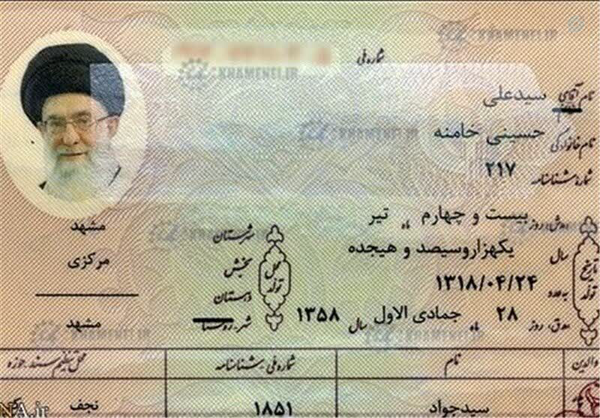 شماره ملی
نام آقای سیدعلی
نام خانوادگی حسینی خامنه
شماره شناسنامه ۲۱۷
روز بیست و چهارم ماه تیر
سال یکهزاروسیصد و هیجده
تاریخ تولد
به عدد ۱۳۱۸/۰۴/۲۴
روز ۲۸ ماه جمادی الاول سال ۱۳۵۸
محل تولد
شهرستان مشهد
بخش مرکزی
دهستان
شهر روستا مشهد
والدین نام شماره ملی شناسنامه محل تنظیم سند حوزه
سیدجواد ۱۸۵۱ نجف
KHAMENEI.IR
KHAMENEI.IR